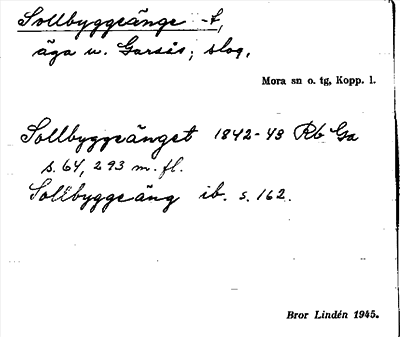 Sollbyggeänge -t,
äga u. Garsås; slog.
Mora sn o. tg, Kopp. l.
Sollbyggeänget 1842-43 Rb Ga
s. 64, 293 m. fl.
Sollbyggeäng ib. s. 162.
Bror Lindén 1945.